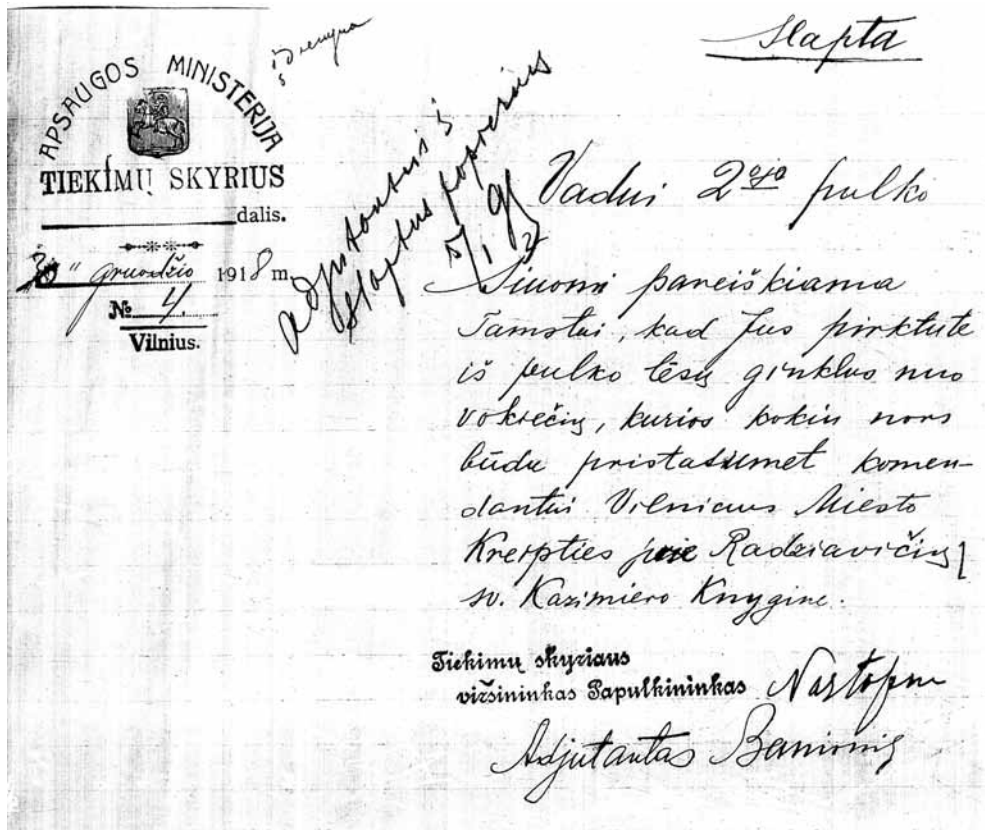 Slapta
APSAUGOS MINISTERIJA
TIEKIMŲ SKYRIUS
dalis.
" gruodžio 1918 m.
№ 4.
Vilnius.
Adjutantui į
slaptus popierius
5/I 19
Vadui 2ojo pulko
Šiuomi pareiškiama
Tamstai, kad Jus pirktute
iš pulko lėsų ginklus nuo
vokiečių, kurios kokiu nors
būdu pristatumet komen-
dantui Vilniaus Miesto
Kreipties prie Radziavičių
sv. Kazimiero Knygine.
Tiekimų skyriaus
viršininkas Papulkininkas Nastopka
Adjutantas Banionis